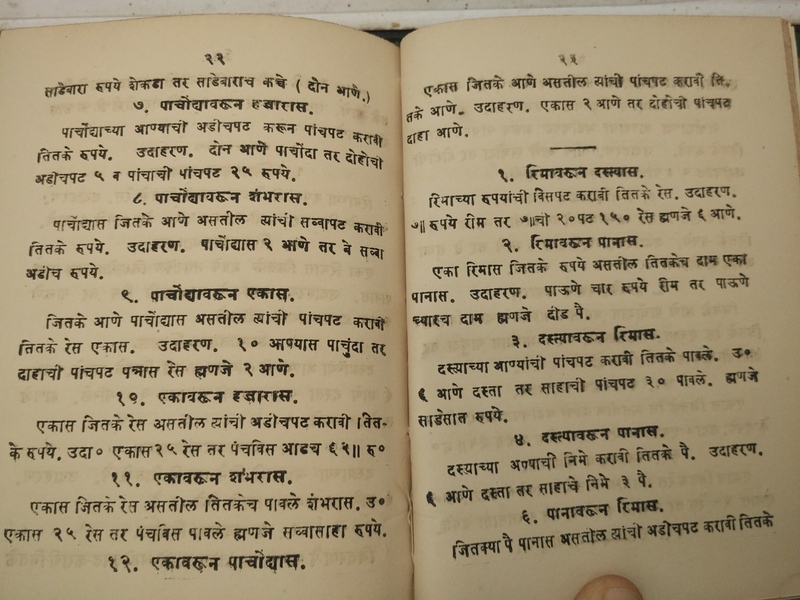 २२
साडेबारा रुपये शेकडा तर साडेबाराच कच्चे ( दोन आणे.)
७. पाचोंद्यावरून हजारास.
पाचोंद्याच्या आण्याची अडीचपट करून पांचपट करावी
तितके रुपये. उदाहरण. दोन आणे पाचोंदा तर दोहोंची
अडीचपट ५ व पांचाची पांचपट २५ रुपये.
८. पाचोंद्यावरून शंभरास.
पाचोंद्यास जितके आणे असतील त्यांची सव्वापट करावी
तितके रुपये. उदाहरण. पाचोंद्यास २ आणे तर बे सव्वा
अडीच रुपये.
९. पाचोंद्यावरून एकास.
जितके आणे पाचोंद्यास असतील त्यांची पांचपट करावी
तितके रेस एकास. उदाहरण. १० आण्यास पाचुंदा तर
दाहाची पांचपट पन्नास रेस ह्मणजे २ आणे.
१०. एकावरून हजारास.
एकास जितके रेस असतील त्यांची अडीचपट करावी तित-
के रुपये. उदा० एकास २५ रेस तर पंचविस अढीच ६२॥ रु०
११. एकावरून शंभरास.
एकास जितके रेस असतील तितकेच पावले शंभरास. उ०
एकास २५ रेस तर पंचविस पावले ह्मणजे सव्वासाहा रुपये.
१२. एकावरून पाचोंद्यास.
२३
एकास जितके आणे असतील त्यांची पांचपट करावी ति-
तके आणे. उदाहरण. एकास २ आणे तर दोहोंची पांचपट
दाहा आणे.
१. रिमावरून दस्त्यास.
रिमाच्या रुपयांची विसपट करावी तितके रेस. उदाहरण.
७॥ रुपये रीम तर ७॥ची २०पट १५० रेस ह्मणजे ६ आणे.
२. रिमावरून पानास.
एका रिमास जितके रुपये असतील तितकेच दाम एका
पानास. उदाहरण. पाऊणे चार रुपये रीम तर पाऊणे
च्यारच दाम ह्मणजे दीड पै.
३. दस्त्यावरून रिमास.
दस्त्याच्या आण्यांची पांचपट करावी तितके पावले. उ०
६ आणे दस्ता तर साहाची पांचपट ३० पावले. ह्मणजे
साडेसात रुपये.
४. दस्त्यावरून पानास.
दस्त्याच्या अण्याची निमे करावी तितके पै. उदाहरण.
६ आणे दस्ता तर साहाचे निमे ३ पै.
६. पानावरून रिमास.
जितक्या पै पानास असतील त्यांची अडीचपट करावी तितके